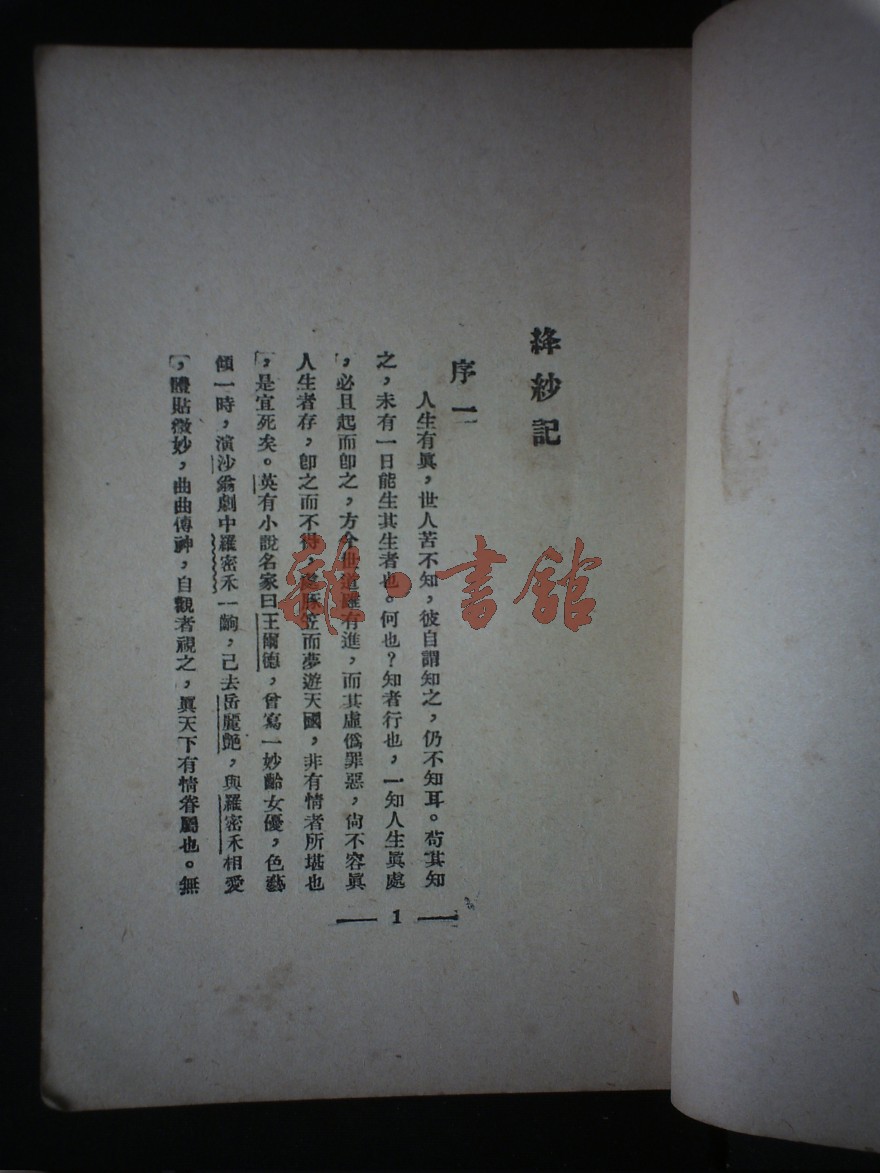 絳紗記
序二
人生有眞，世人苦不知，彼自謂知之，仍不知耳。苟其知
之，未有一日能生其生者也。何也？知者行也，一知人生眞處
，必且起而卽之，方今世道雖有進，而其虛僞罪惡，尙不容眞
人生者存，卽之而不得，笠而夢遊天國，非有情者所堪也
，是宜死矣。英有小說名家曰王爾德，曾寫一妙齡女優，色藝
傾一時，演沙翁劇中羅密禾一齣，己去岳麗艷，與羅密禾相愛
，體貼微妙，曲曲傳神，自觀者視之，眞天下有情眷屬也。無
1
雜·書館